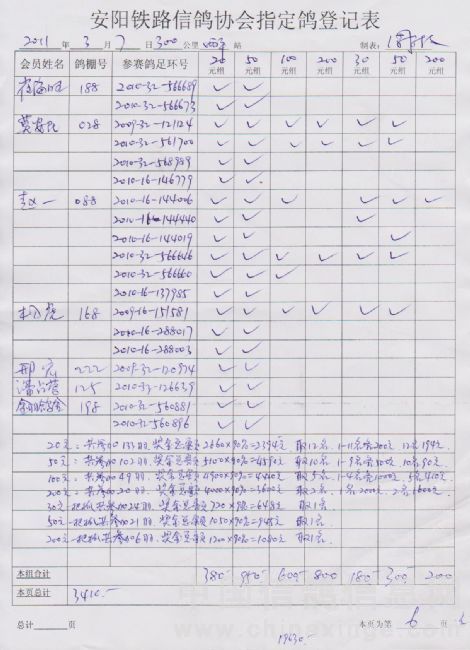 安阳铁路信鸽协会指定鸽登记表
2011 年 3 月 7 日 300 公里 站 制表:
会员姓名 鸽棚号 参赛鸽足环号 20元组 50元组 100元组 200元组 30元组 50元组 200元组
188 2010-32-566689 ✓ ✓
2010-32-566673 ✓ ✓
028 2009-32-121124 ✓ ✓ ✓ ✓ ✓ ✓
2010-32-561700 ✓ ✓ ✓ ✓ ✓ ✓
2010-32-568989 ✓ ✓
2010-16-146779 ✓ ✓
赵一 088 2010-16-144006 ✓ ✓ ✓ ✓ ✓ ✓ ✓
2010-16-144440 ✓ ✓ ✓
2010-16-144019 ✓ ✓ ✓
2010-32-566646 ✓ ✓ ✓ ✓ ✓ ✓
2010-32-566660 ✓ ✓ ✓ ✓
2010-16-137985 ✓ ✓
168 2009-16-151581 ✓ ✓ ✓ ✓ ✓ ✓
2010-16-288017 ✓ ✓
2010-16-288003 ✓ ✓
邢宏 222 2009-32-120974 ✓ ✓
125 2010-32-126639 ✓ ✓
198 2010-32-560881 ✓ ✓
2010-32-560896 ✓ ✓
20元: 共参加133羽, 奖金总额2660×90%=2394元 取12名 1-11名各200元 12名194元
50元: 共参加102羽, 奖金总额5100×90%=4590元 取10名 1-9名各500元 10名90元
100元: 共参加49羽, 奖金总额4900×90%=4410元 取5名 1-4名各1000元 5名410元
200元: 共参加20羽, 奖金总额4000×90%=3600元 取2名 1名2000元 2名1600元
30元一把抓共参加24羽, 奖金总额720×90%=648元 取1名
50元一把抓共参加21羽, 奖金总额1050×90%=945元 取1名
200元一把抓共参加6羽, 奖金总额1200×90%=1080元 取1名
本组合计 380- 950- 600- 800 180- 300- 200
本页总计 3410.-
总计 页 本页为第 6 页
19630.-
www.chinaxinge.com